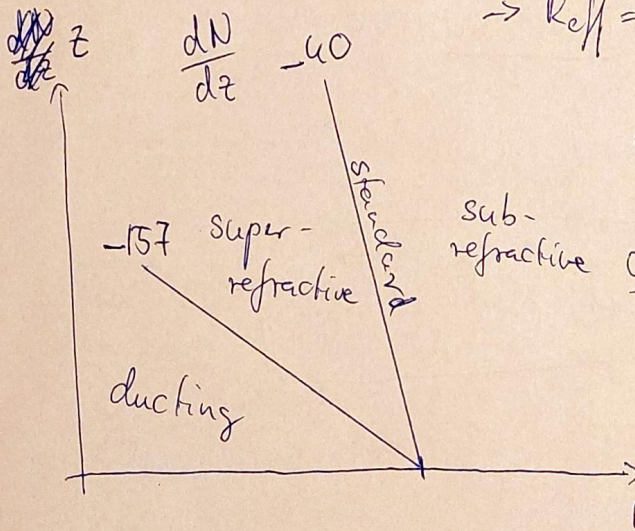 z
dN
dz
-40
→ Reff =
standard
sub-
refractive
-157
super-
refractive
ducting